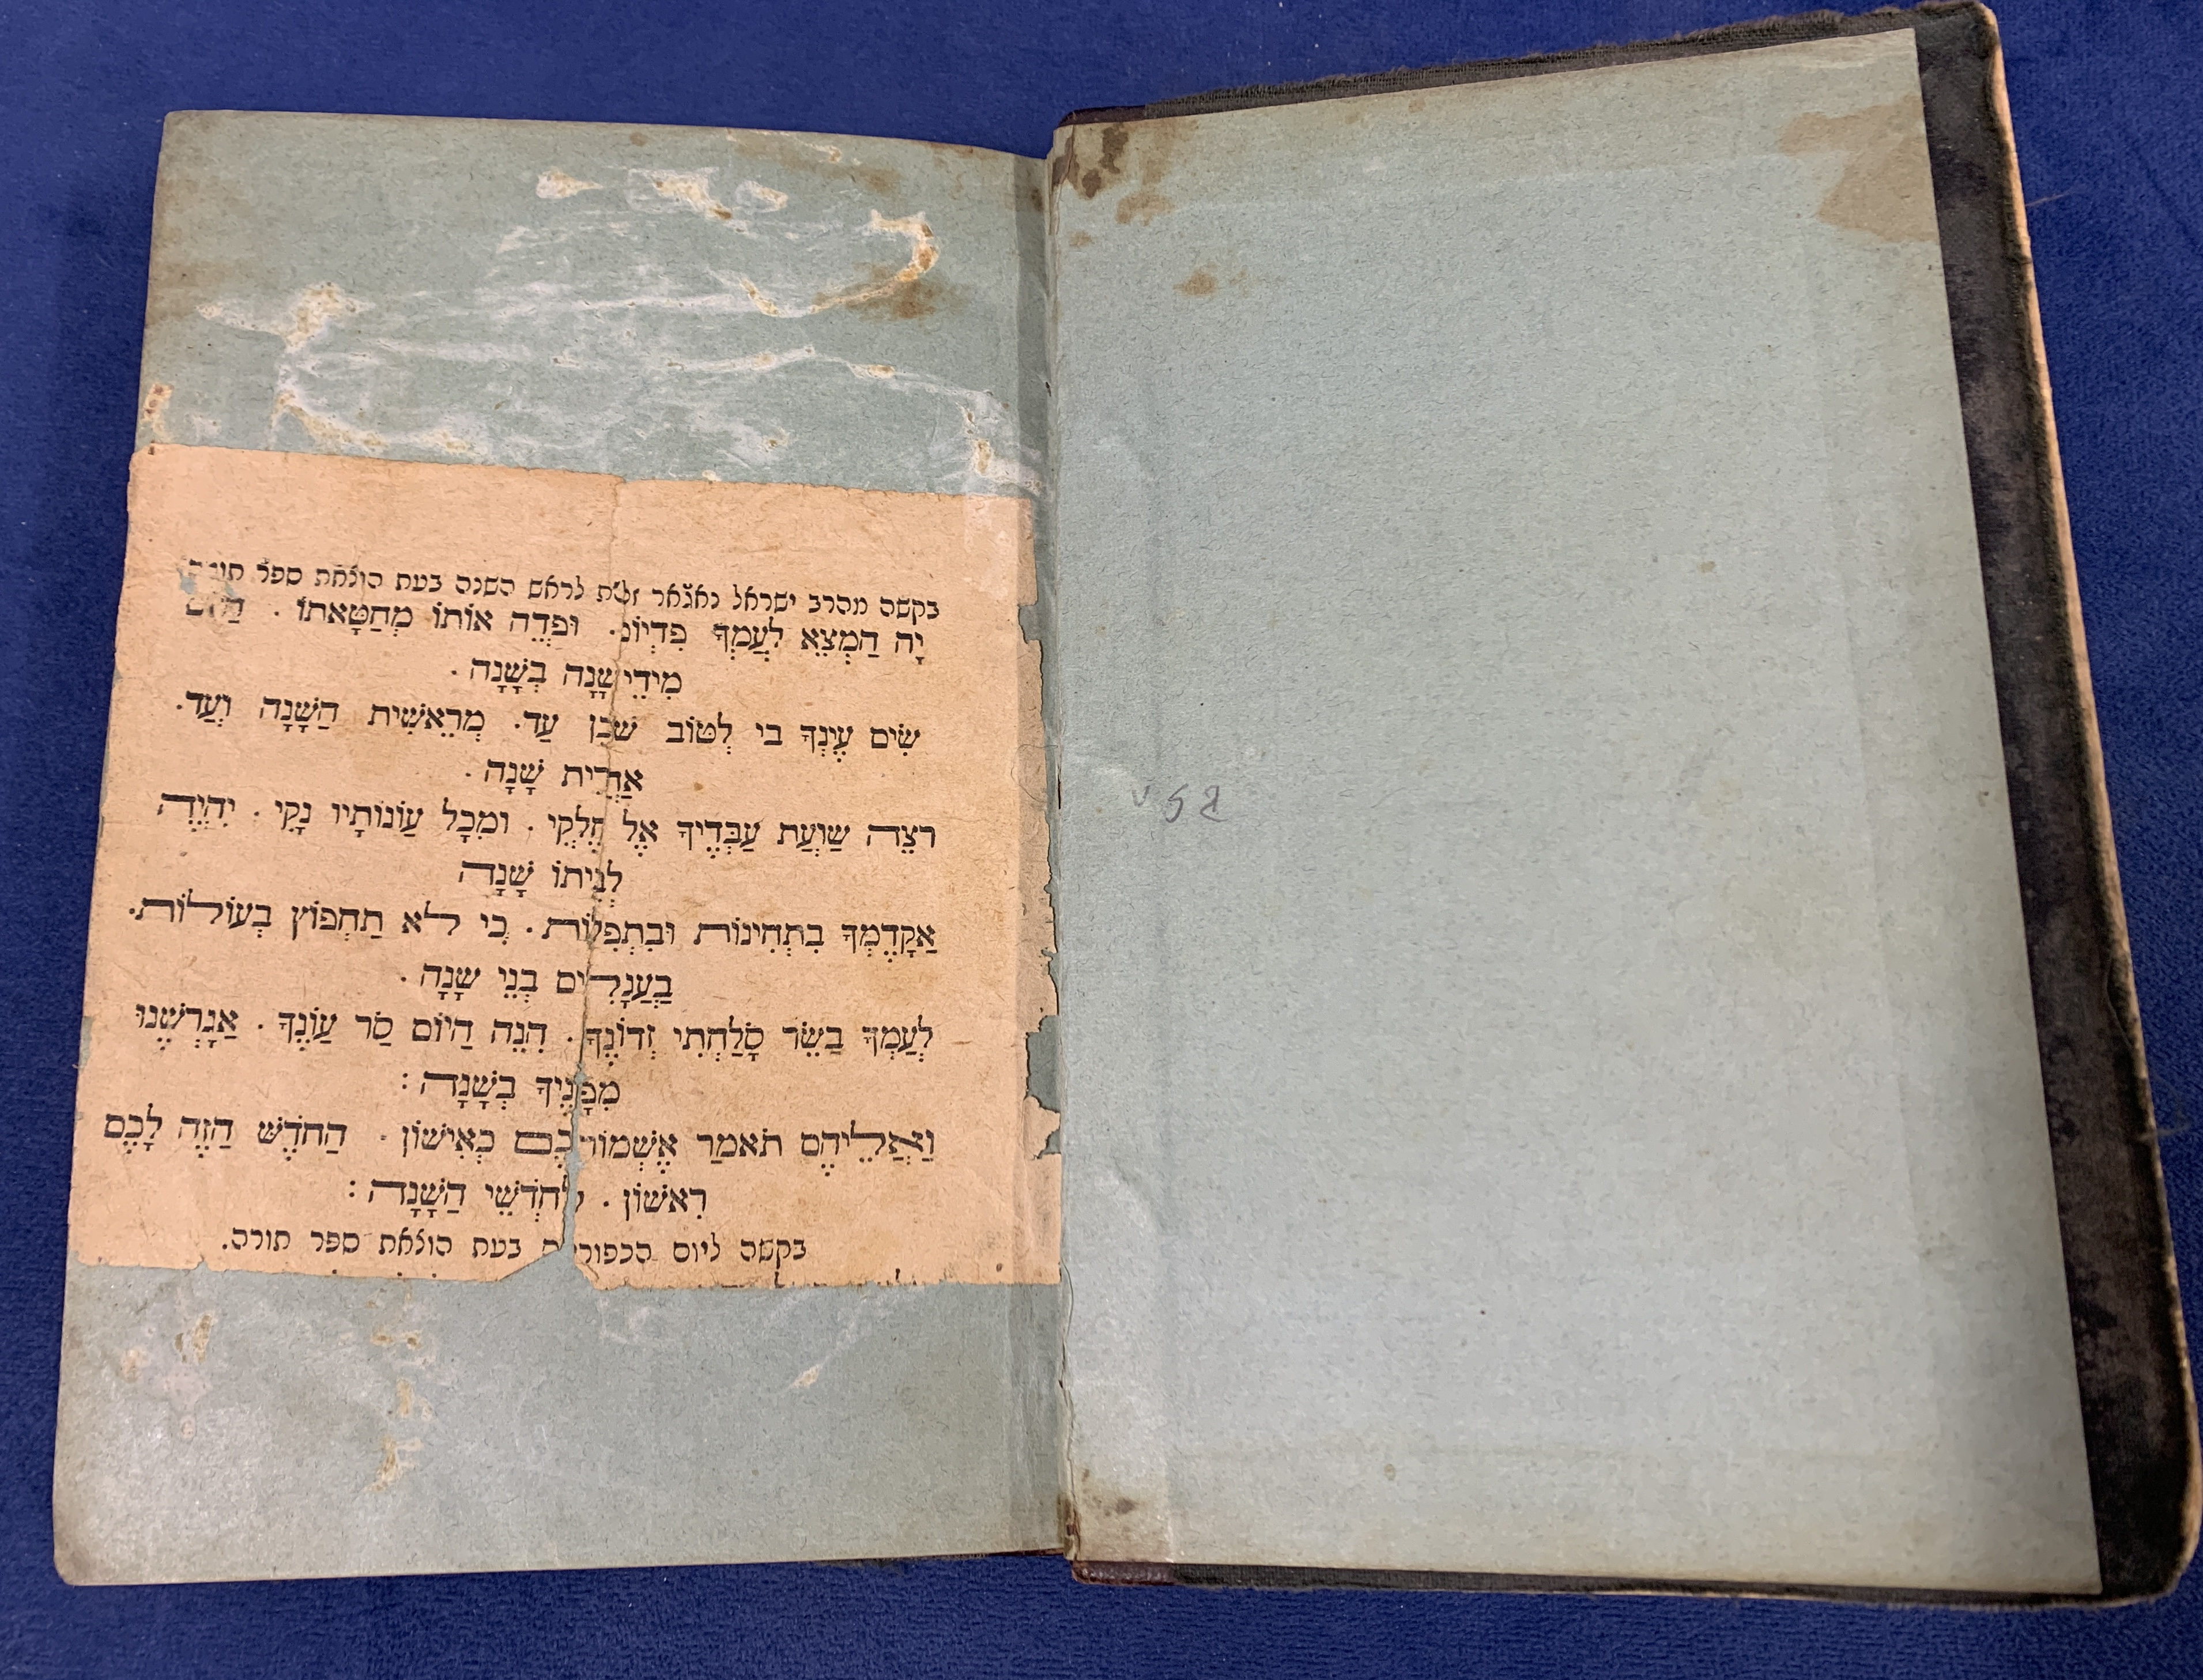 בקשה מהרב ישראל נאגאר זל״ת לראש השנה בעת הוצאת ספר תורה
יָה הַמְצֵא לְעַמְּךָ פִּדְיוֹנ. וּפְדֵה אוֹתוֹ מְחַטָּאתוֹ.
מִידֵי שָׁנָה בְּשָׁנָה.
שִׂים עֶינְךָ בִי לְטוֹב שֹׁכֵן עַד. מְרֵאשִׁית הַשָּׁנָה וְעַד.
אַחֲרִית שָׁנָה.
רצֵה שַׁוְעַת עַבְדֶיךָ אֶל חֶלְקִי. וּמִכָל עַוֹנוֹתָיו נָקִי. יִהְיֶה
לְבֵיתוֹ שָׁנָה
אַקָדֶמְךָ בִתְחִינוֹת וּבִתְפִלוֹת. כִי לֹא תַחְפּוֹץ בְעוֹלוֹת.
בַּעֲגָלִים בְּנֵי שָׁנָה.
לְעַמְךָ בַשֵׂר סָלַחְתִי זְדוֹנֶךָ. הִנֵה הַיוֹם סַר עַוֹנֶךָ. אֲגָרְשֶׁנוּ
מִפָּנֶיךָ בְשָׁנָה:
וַאֲלֵיהֶם תֹאמַר אֶשְׁמוֹר כֶם כְאִישׁוֹן. הַחֹדֶשׁ הַזֶה לָכֶם
רִאשׁוֹן. לְחָדְשֵׁי הַשָׁנָה:
בקשה ליום הכפורים בעת הוצאת ספר תורה.